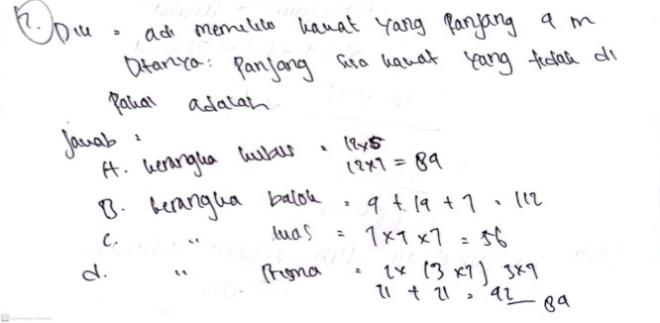 2. Dik = adi memiliki kawat yang panjang 9 m
Ditanya: Panjang sisa kawat yang tidak di
pakai adalah
Jawab :
A. kerangka kubus = 12x5
12x7 = 89
B. kerangka balok = 9 + 19 + 7 = 112
C. " luas = 7x7x7 = 56
d. " Prisma = 2x (3 x7) 3x7
21 + 21 = 42 89